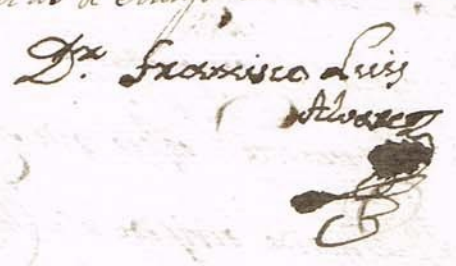 Dr. Francisco Luis
Alvarez